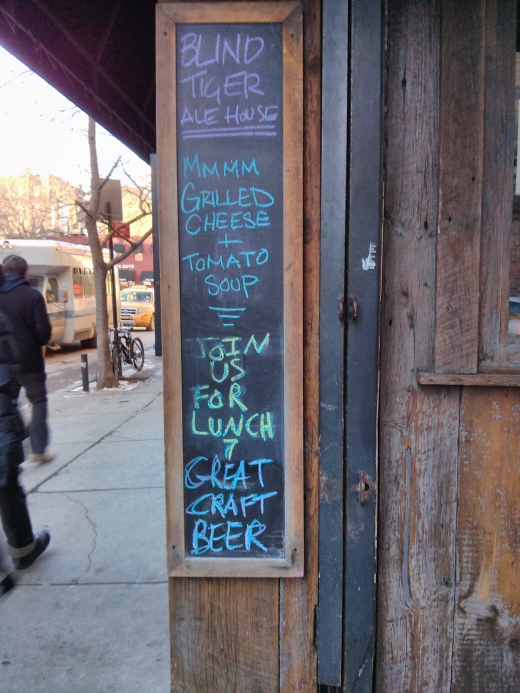 BLIND
TIGER
ALE HOUSE
MMMMM
GRILLED
CHEESE
+
TOMATO
SOUP
JOIN
US
FOR
LUNCH
7
GREAT
CRAFT
BEER